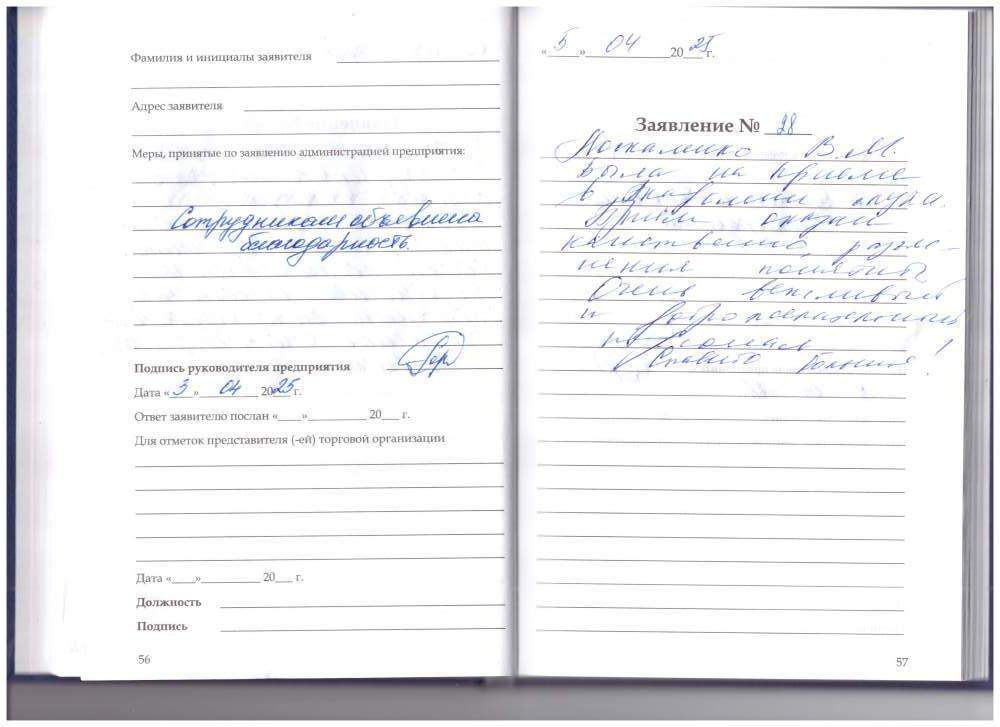 Фамилия и инициалы заявителя
Адрес заявителя
Меры, принятые по заявлению администрацией предприятия:
Сотрудникам объявлена
благодарность.
Подпись руководителя предприятия
Дата «3» 04 2025 г.
Ответ заявителю послан «____»__________ 20___ г.
Для отметок представителя (-ей) торговой организации
Дата «____»__________ 20___ г.
Должность
Подпись
56
«5» 04 2025 г.
Заявление № 28
В.М.
была на приеме
в Академии слуха.
Прием оказан
качественно разъяс-
нения понятны
Очень вежливый
и доброжелательный
персонал
Спасибо большое!
57